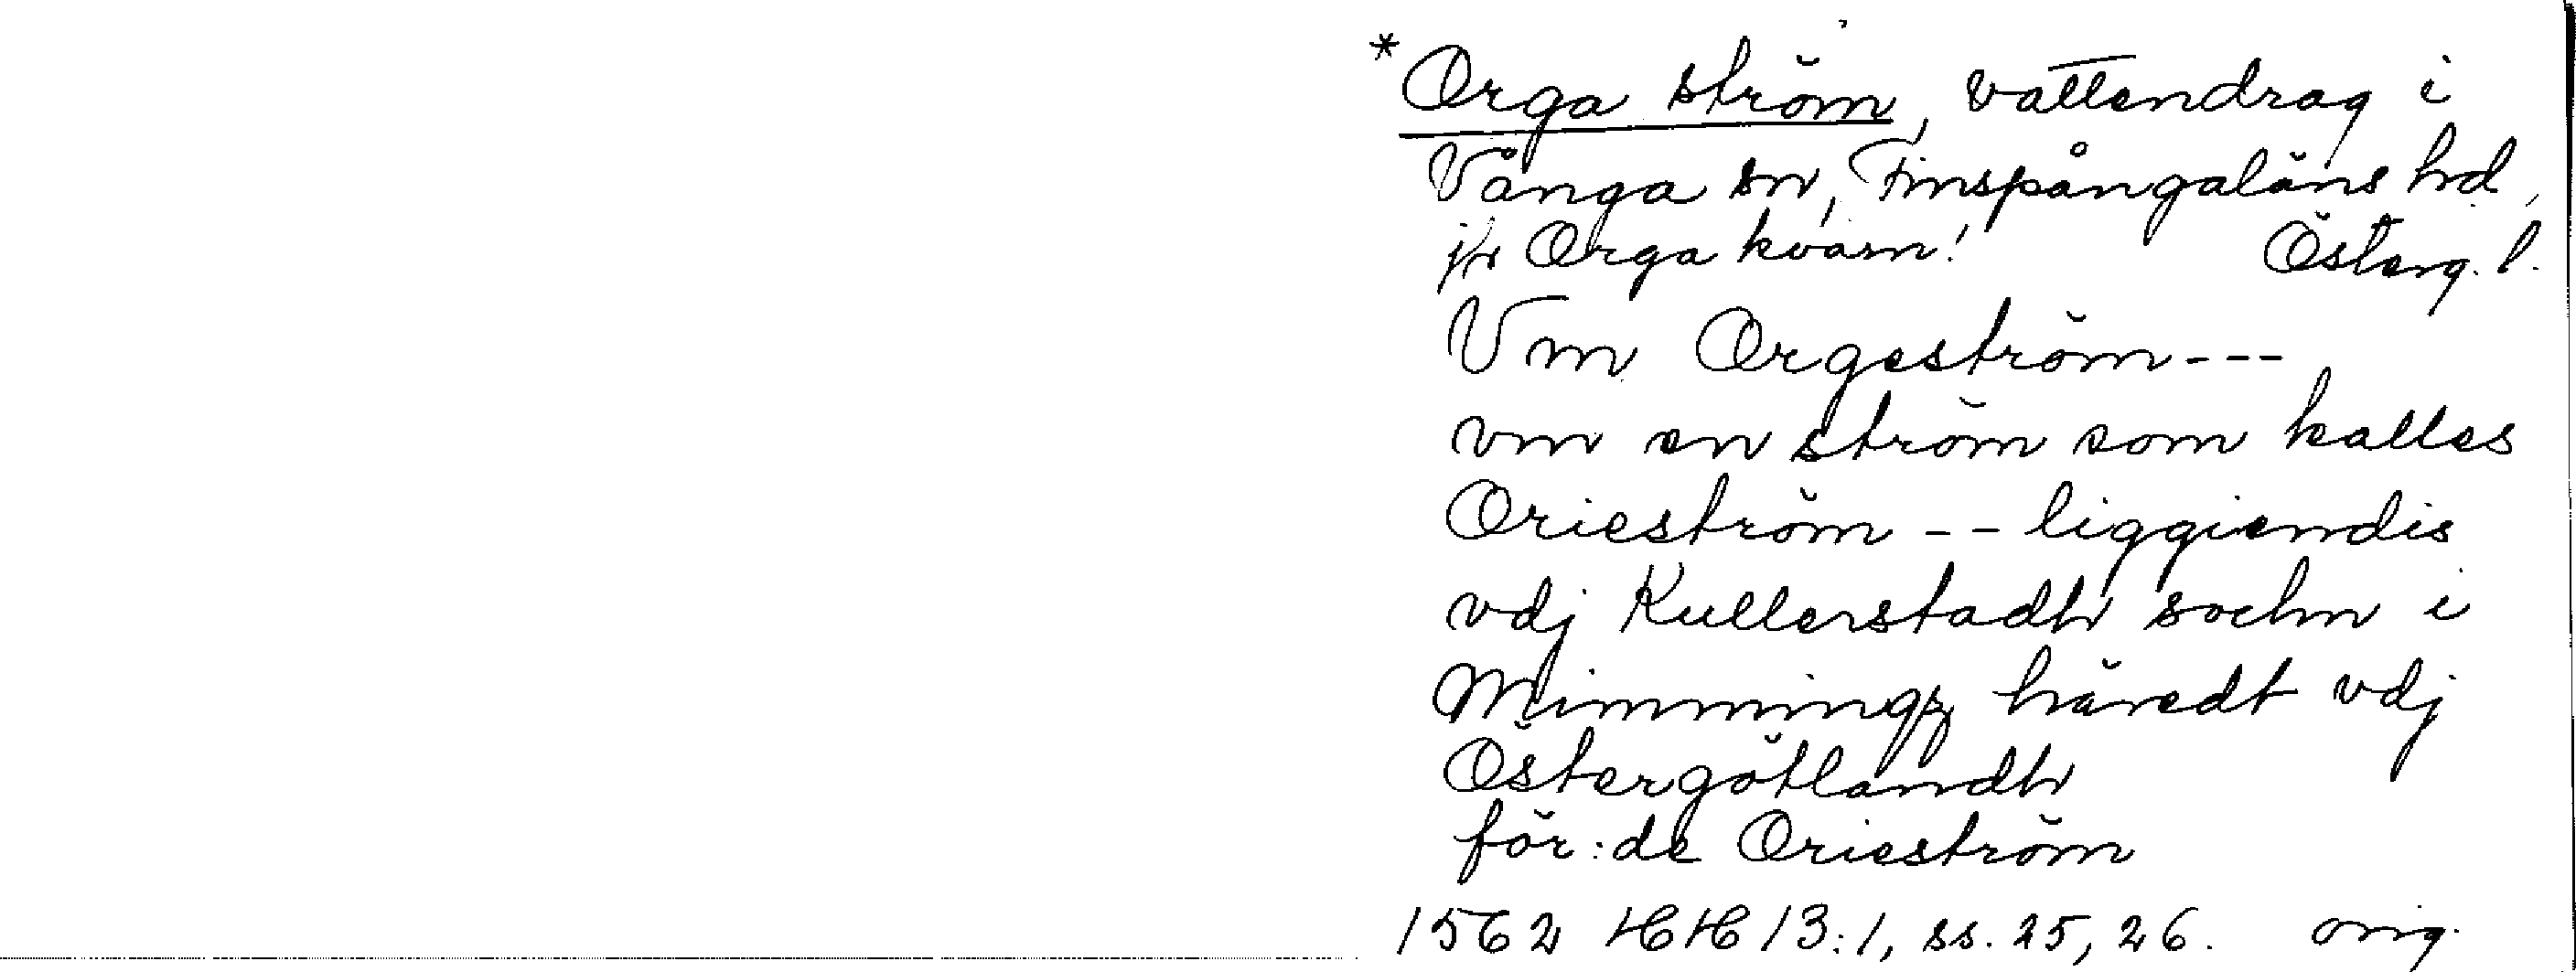 *Orga ström, vattendrag i
Vånga sn, Finspångaläns hd,
jfr Orga kvarn! Österg. l.
Vm Orgeström---
vm en ström som kalles
Orieström -- liggiendis
vdj Kullerstadh sochn i
Mimmingz häredt vdj
Östergötlandh
för:de Orieström
1562 HH 13:1, ss. 25, 26. orig.